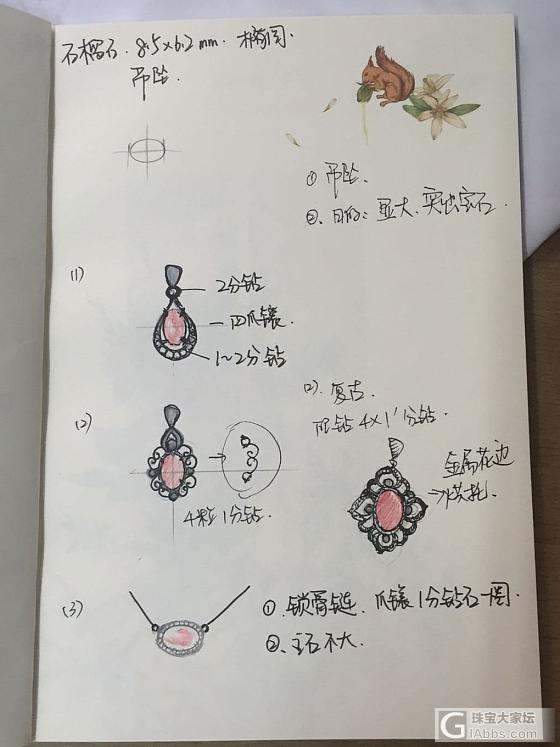 石榴石. 8.5×6.2mm. 椭圆.
吊坠.
① 吊坠.
②. 目的: 显大. 突出宝石.
(1)
2分钻
四爪镶.
1~2分钻
(2)
4粒1分钻.
(2). 复古.
配钻4×1分钻.
金属花边
(3)
①. 锁骨链. 爪镶1分钻石一圈.
②. 主石不大.
珠宝大家坛
iAbbs.com